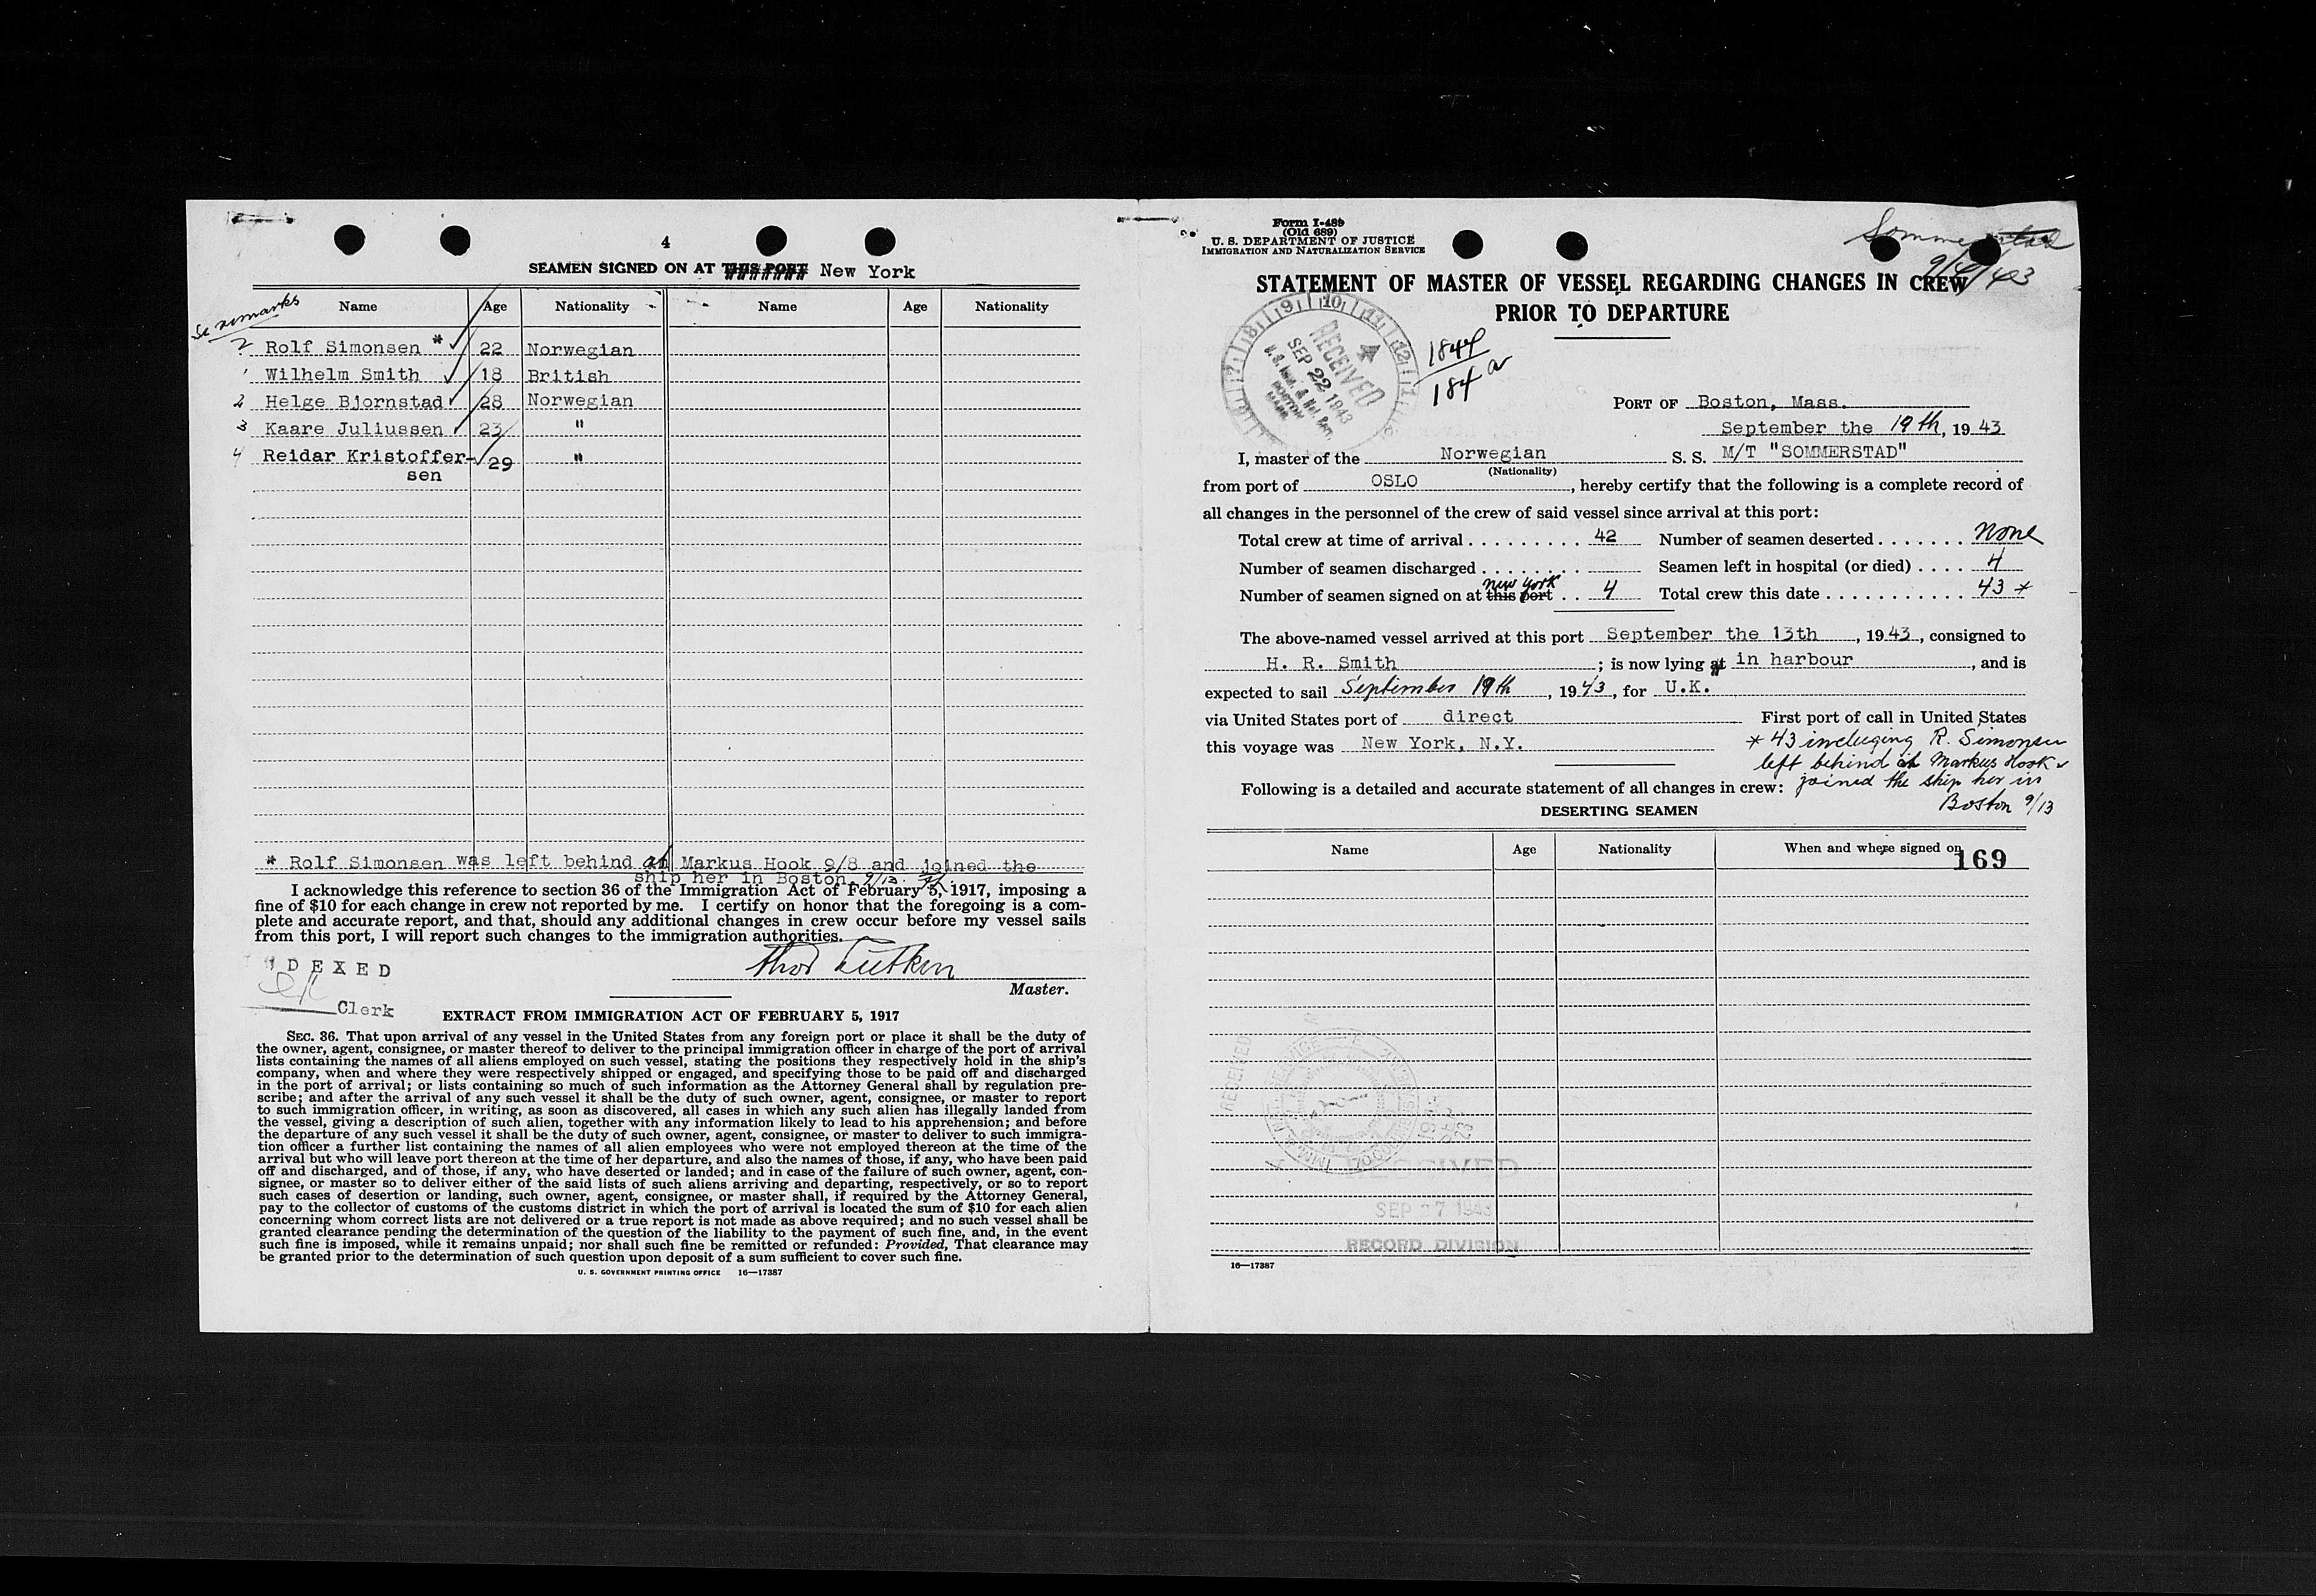 4
SEAMEN SIGNED ON AT THIS PORT New York
Name Age Nationality Name Age Nationality
Se remarks
2 Rolf Simonsen * 22 Norwegian
1 Wilhelm Smith 18 British
2 Helge Bjornstad 28 Norwegian
3 Kaare Juliussen 23 "
4 Reidar Kristoffer- 29 "
sen
* Rolf Simonsen was left behind at Markus Hook 9/8 and joined the
ship her in Boston 9/13.
I acknowledge this reference to section 36 of the Immigration Act of February 5, 1917, imposing a
fine of $10 for each change in crew not reported by me. I certify on honor that the foregoing is a com-
plete and accurate report, and that, should any additional changes in crew occur before my vessel sails
from this port, I will report such changes to the immigration authorities.
INDEXED
Clerk
Thor Lütken
Master.
EXTRACT FROM IMMIGRATION ACT OF FEBRUARY 5, 1917
SEC. 36. That upon arrival of any vessel in the United States from any foreign port or place it shall be the duty of
the owner, agent, consignee, or master thereof to deliver to the principal immigration officer in charge of the port of arrival
lists containing the names of all aliens employed on such vessel, stating the positions they respectively hold in the ship's
company, when and where they were respectively shipped or engaged, and specifying those to be paid off and discharged
in the port of arrival; or lists containing so much of such information as the Attorney General shall by regulation pre-
scribe; and after the arrival of any such vessel it shall be the duty of such owner, agent, consignee, or master to report
to such immigration officer, in writing, as soon as discovered, all cases in which any such alien has illegally landed from
the vessel, giving a description of such alien, together with any information likely to lead to his apprehension; and before
the departure of any such vessel it shall be the duty of such owner, agent, consignee, or master to deliver to such immigra-
tion officer a further list containing the names of all alien employees who were not employed thereon at the time of the
arrival but who will leave port thereon at the time of her departure, and also the names of those, if any, who have been paid
off and discharged, and of those, if any, who have deserted or landed; and in case of the failure of such owner, agent, con-
signee, or master so to deliver either of the said lists of such aliens arriving and departing, respectively, or so to report
such cases of desertion or landing, such owner, agent, consignee, or master shall, if required by the Attorney General,
pay to the collector of customs of the customs district in which the port of arrival is located the sum of $10 for each alien
concerning whom correct lists are not delivered or a true report is not made as above required; and no such vessel shall be
granted clearance pending the determination of the question of the liability to the payment of such fine, and, in the event
such fine is imposed, while it remains unpaid; nor shall such fine be remitted or refunded: Provided, That clearance may
be granted prior to the determination of such question upon deposit of a sum sufficient to cover such fine.
U. S. GOVERNMENT PRINTING OFFICE 16—17387
Form I-489
(Old 689)
U. S. DEPARTMENT OF JUSTICE
IMMIGRATION AND NATURALIZATION SERVICE
Sommerstad
9/4/43
STATEMENT OF MASTER OF VESSEL REGARDING CHANGES IN CREW
PRIOR TO DEPARTURE
RECEIVED
SEP 22 1943
BOSTON
MASS.
184 a
PORT OF Boston, Mass.
September the 19th, 1943
I, master of the Norwegian S. S. M/T "SOMMERSTAD"
(Nationality)
from port of OSLO, hereby certify that the following is a complete record of
all changes in the personnel of the crew of said vessel since arrival at this port:
Total crew at time of arrival 42 Number of seamen deserted None
Number of seamen discharged Seamen left in hospital (or died) 4
New York
Number of seamen signed on at this port 4 Total crew this date 43 *
The above-named vessel arrived at this port September the 13th, 1943, consigned to
H. R. Smith; is now lying at in harbour, and is
expected to sail September 19th, 1943, for U.K.
via United States port of direct First port of call in United States
this voyage was New York, N.Y.
* 43 incluging R. Simonsen
left behind at Markus Hook
joined the ship her in
Boston 9/13
Following is a detailed and accurate statement of all changes in crew:
DESERTING SEAMEN
Name Age Nationality When and where signed on
169
RECEIVED
SEP 27 1943
RECORD DIVISION
16—17387